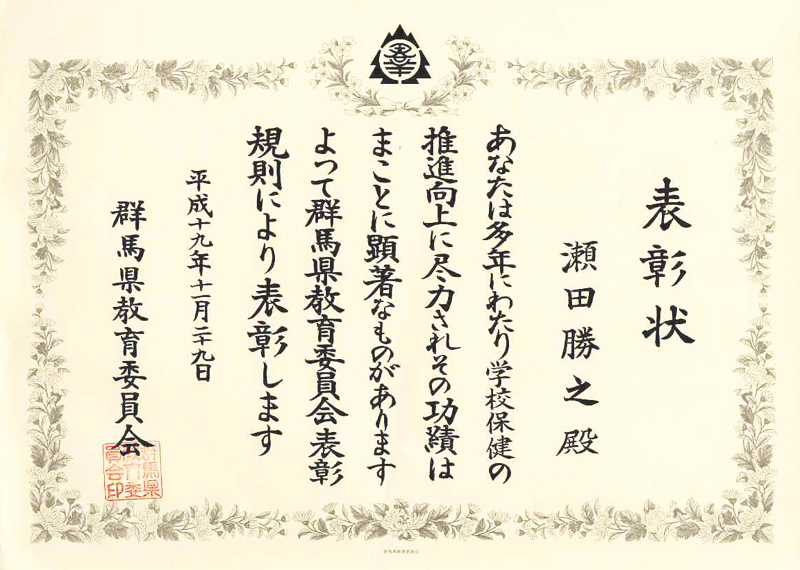 表彰状
瀬田勝之殿
あなたは多年にわたり学校保健の
推進向上に尽力されその功績は
まことに顕著なものがあります
よって群馬県教育委員会表彰
規則により表彰します
平成十九年十一月二十九日
群馬県教育委員会
群馬県
教育委
員会印